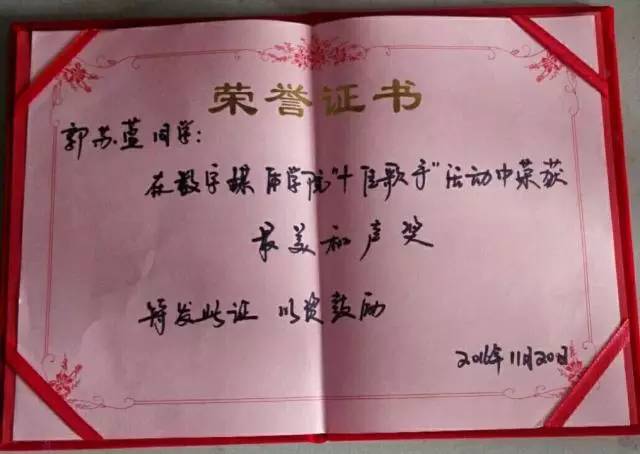 荣誉证书
郭苏蓝同学：
在数字媒体学院"十佳歌手"活动中荣获
最美和声奖
特发此证 以资鼓励
2016年11月20日